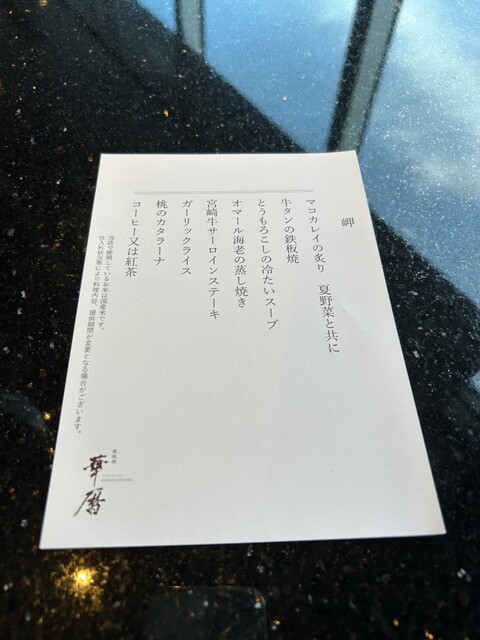 岬
マコカレイの炙り　夏野菜と共に
牛タンの鉄板焼
とうもろこしの冷たいスープ
オマール海老の蒸し焼き
宮崎牛サーロインステーキ
ガーリックライス
桃のカタラーナ
コーヒー又は紅茶
当店で使用しているお米は国産米です。
仕入れ状況等により料理内容、提供期間が変更となる場合がございます。
鉄板焼
華暦